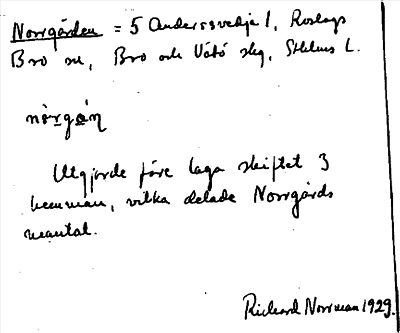 Norrgården = 5 Andersvedja 1, Roslags
Bro sn, Bro och Vätö skg, Sthlms L.
nòrgạ́ṇ
Utgjorde före laga skiftet 3
hemman, vilka delade Norrgårds
mantal.
Richard Norrman 1929.